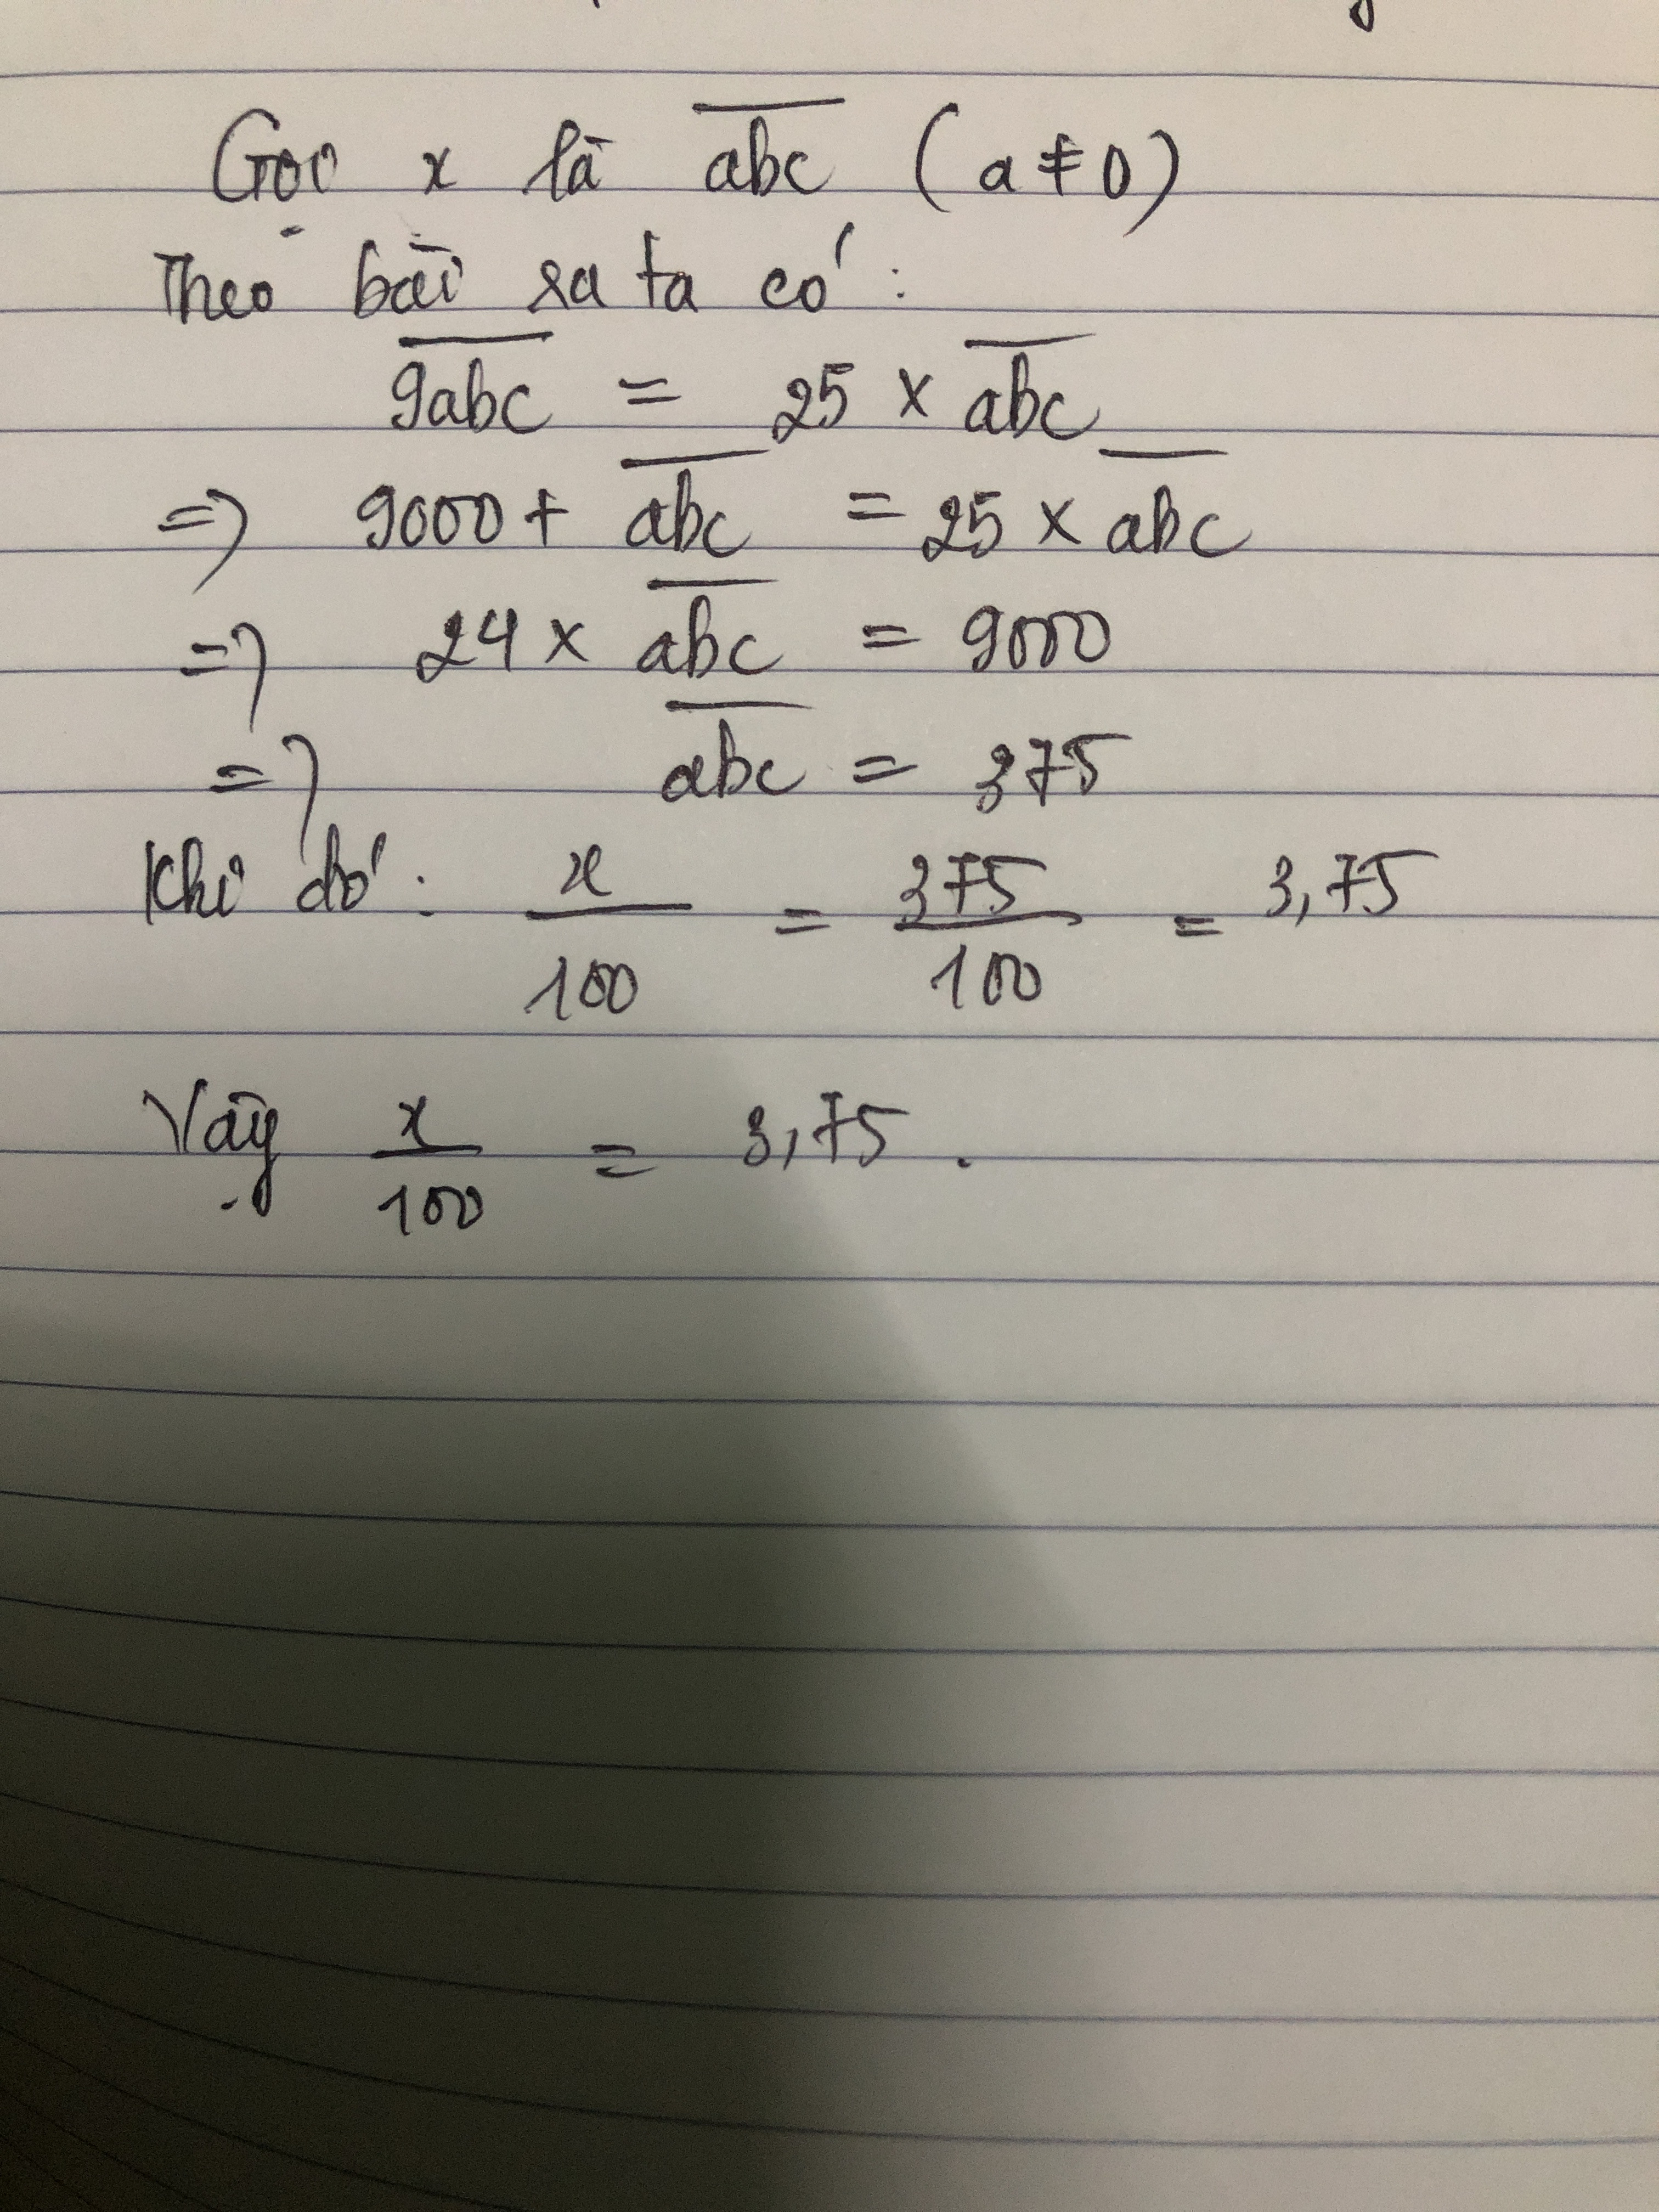 Gọi x là \overline{abc} (a ≠ 0)
Theo bài ra ta có:
\overline{9abc} = 25 × \overline{abc}
=> 9000 + \overline{abc} = 25 × \overline{abc}
=> 24 × \overline{abc} = 9000
=> \overline{abc} = 375
Khi đó: x/100 = 375/100 = 3,75
Vậy x/100 = 3,75.